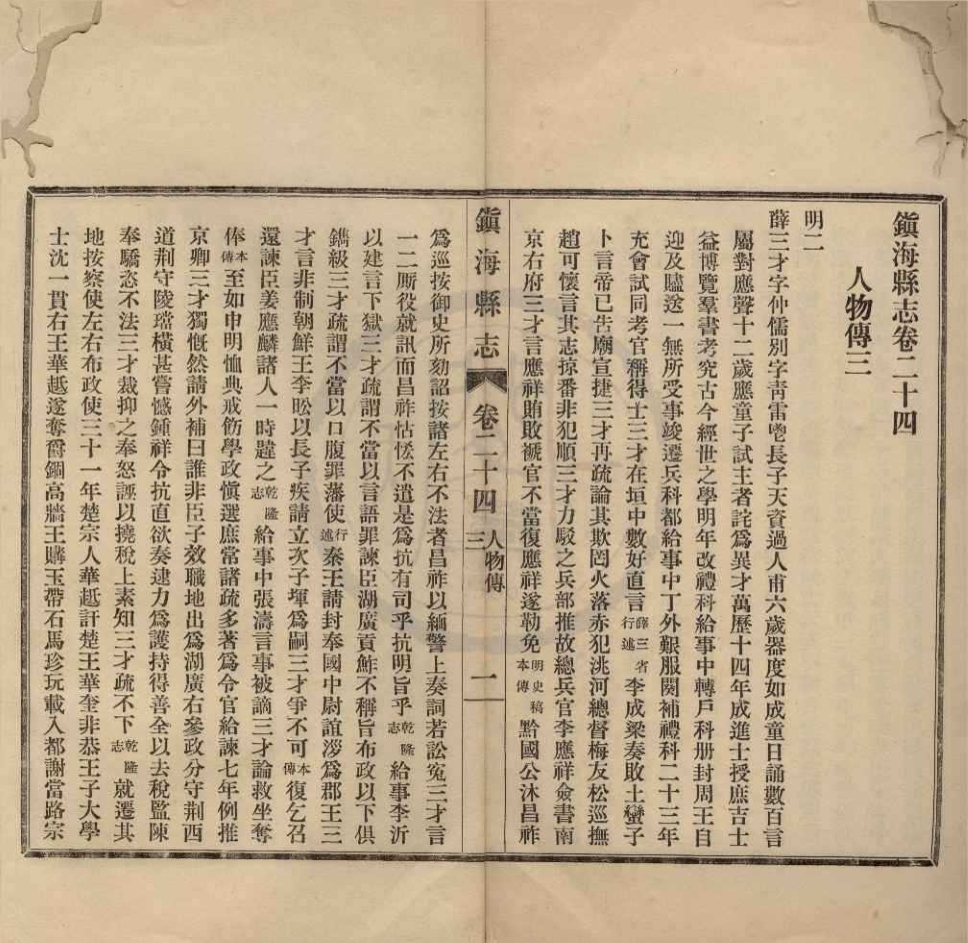 鎭海縣志卷二十四
人物傳三
明二
薛三才字仲儒別字靑雷甡長子天資過人甫六歲器度如成童日誦數百言
屬對應聲十二歲應童子試主者詫爲異才萬歷十四年成進士授庶吉士
益博覽羣書考究古今經世之學明年改禮科給事中轉戶科册封周王自
迎及贐送一無所受事竣遷兵科都給事中丁外艱服闋補禮科二十三年
充會試同考官稱得士三才在垣中數好直言薛三省行述李成梁奏敗土蠻子
卜言帝已告廟宣捷三才再疏論其欺罔火落赤犯洮河總督梅友松巡撫
趙可懷言其志掠番非犯順三才力駁之兵部推故總兵官李應祥僉書南
京右府三才言應祥賄敗褫官不當復應祥遂勒免明史稿本傳黔國公沐昌祚
鎭海縣志 卷二十四 人物傳三 一
爲巡按御史所劾詔按諸左右不法者昌祚以緬警上奏詞若訟寃三才言
一二厮役就訊而昌祚怙恡不遣是爲抗有司乎抗明旨乎乾隆志給事李沂
以建言下獄三才疏謂不當以言語罪諫臣湖廣貢鮓不稱旨布政以下俱
鐫級三才疏謂不當以口腹罪藩使行述秦王請封奉國中尉誼漻爲郡王三
才言非制朝鮮王李昖以長子疾請立次子琿爲嗣三才爭不可本傳復乞召
還諫臣姜應麟諸人一時韙之乾隆志給事中張濤言事被謫三才論救坐奪
俸本傳至如申明恤典戒飭學政愼選庶常諸疏多著爲令官給諫七年例推
京卿三才獨慨然請外補曰誰非臣子效職地出爲湖廣右參政分守荆西
道荆守陵璫橫甚嘗憾鍾祥令抗直欲奏逮力爲護持得善全以去稅監陳
奉驕恣不法三才裁抑之奉怒誣以撓稅上素知三才疏不下乾隆志就遷其
地按察使左右布政使三十一年楚宗人華趆訐楚王華奎非恭王子大學
士沈一貫右王華趆遂奪爵錮高牆王購玉帶石馬珍玩載入都謝當路宗